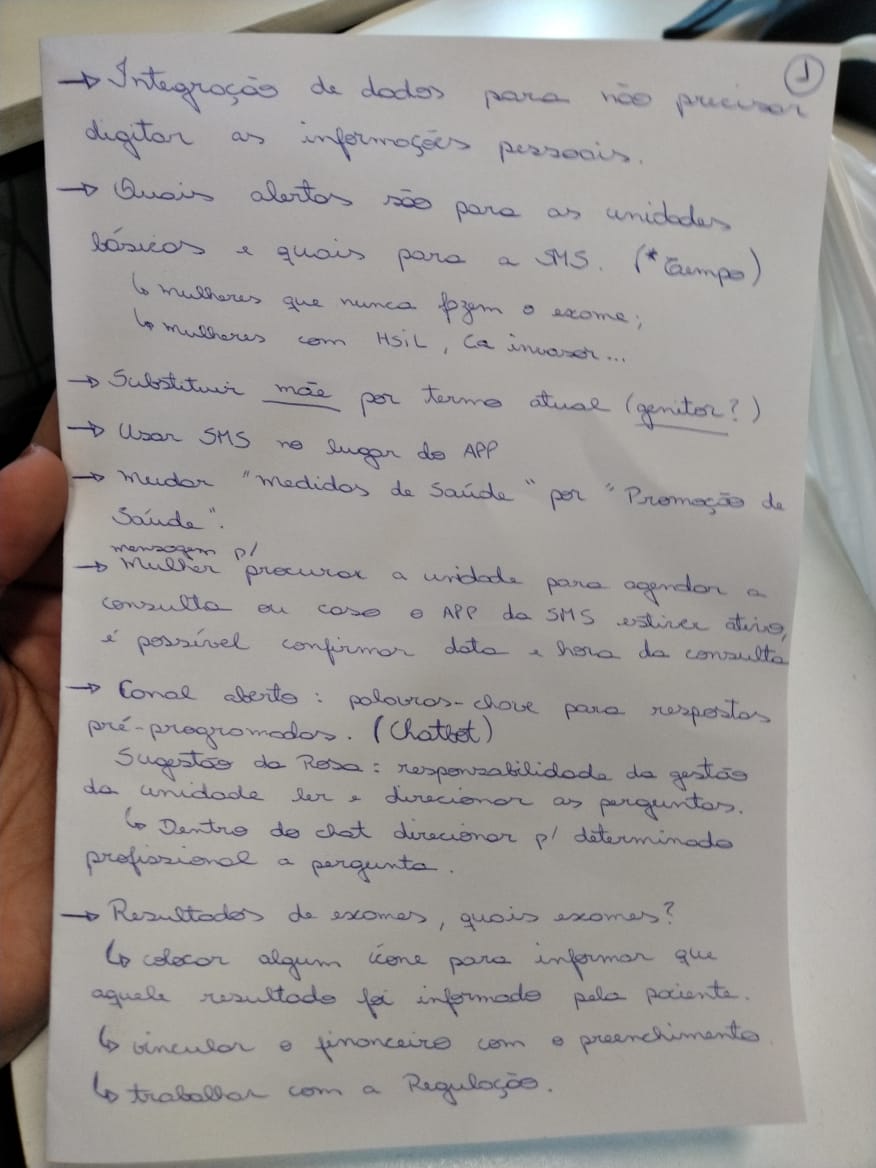 ①
→ Integração de dados para não precisar
digitar as informações pessoais.
→ Quais alertas são para as unidades
básicas e quais para a SMS. (* Tempo)
↳ mulheres que nunca fazem o exame;
↳ mulheres com HSIL, Ca invasor...
→ Substituir mãe por termo atual (genitor?)
→ Usar SMS no lugar do APP
→ Mudar "medidas de Saúde" por "Promoção de
Saúde".
mensagem p/
→ Mulher procurar a unidade para agendar a
consulta ou caso o APP da SMS estiver ativo,
é possível confirmar data e hora da consulta
→ Canal aberto: palavras-chave para respostas
pré-programadas. (Chatbot)
Sugestão da Rosa: responsabilidade da gestão
da unidade ler e direcionar as perguntas.
↳ Dentro do chat direcionar p/ determinado
profissional a pergunta.
→ Resultados de exames, quais exames?
↳ colocar algum ícone para informar que
aquele resultado foi informado pela paciente.
↳ vincular o financeiro com o preenchimento.
↳ trabalhar com a Regulação.